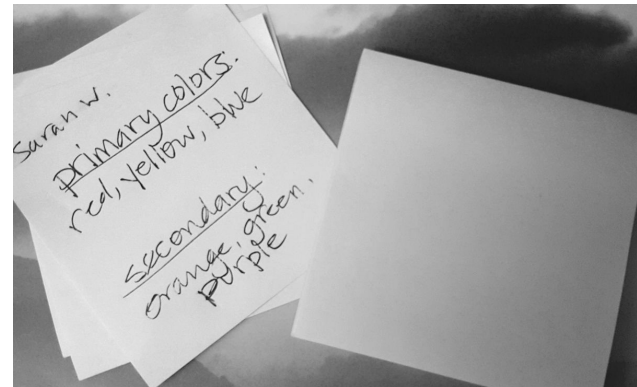 Sarah W.
primary colors:
red, yellow, blue
secondary:
orange, green,
purple